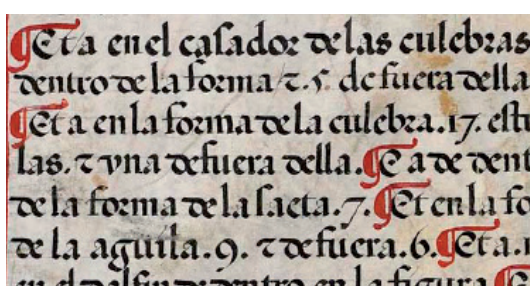 ¶Et a en el caçador de las culebras
dentro de la forma ⁊.5. de fuera della
¶Et a en la forma de la culebra.17. estre
las. ⁊ vna de fuera della. ¶E a de dent
de la forma de la saeta. 7. ¶Et en la fo
de la aguila. 9. ⁊ de fuera. 6. ¶Et a.
en el dalfin de dentro en la figura. ¶